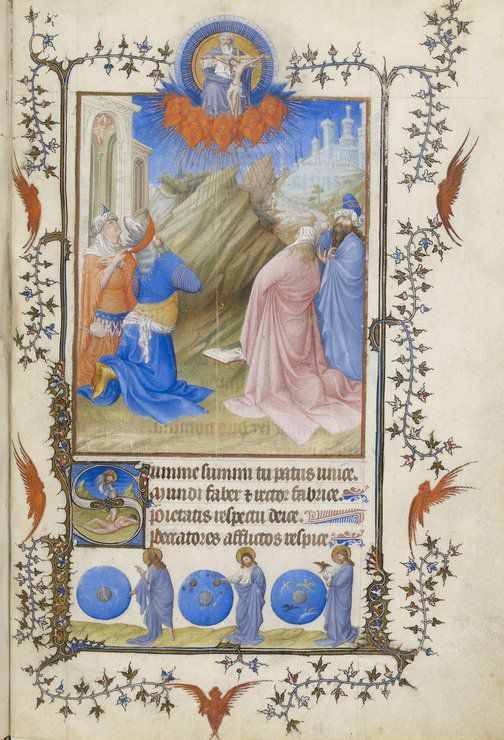 Summe summi tu patris unice.
Mundi faber ⁊ rector fabrice
Pietatis respectu deice.
Peccatores afflictos respice